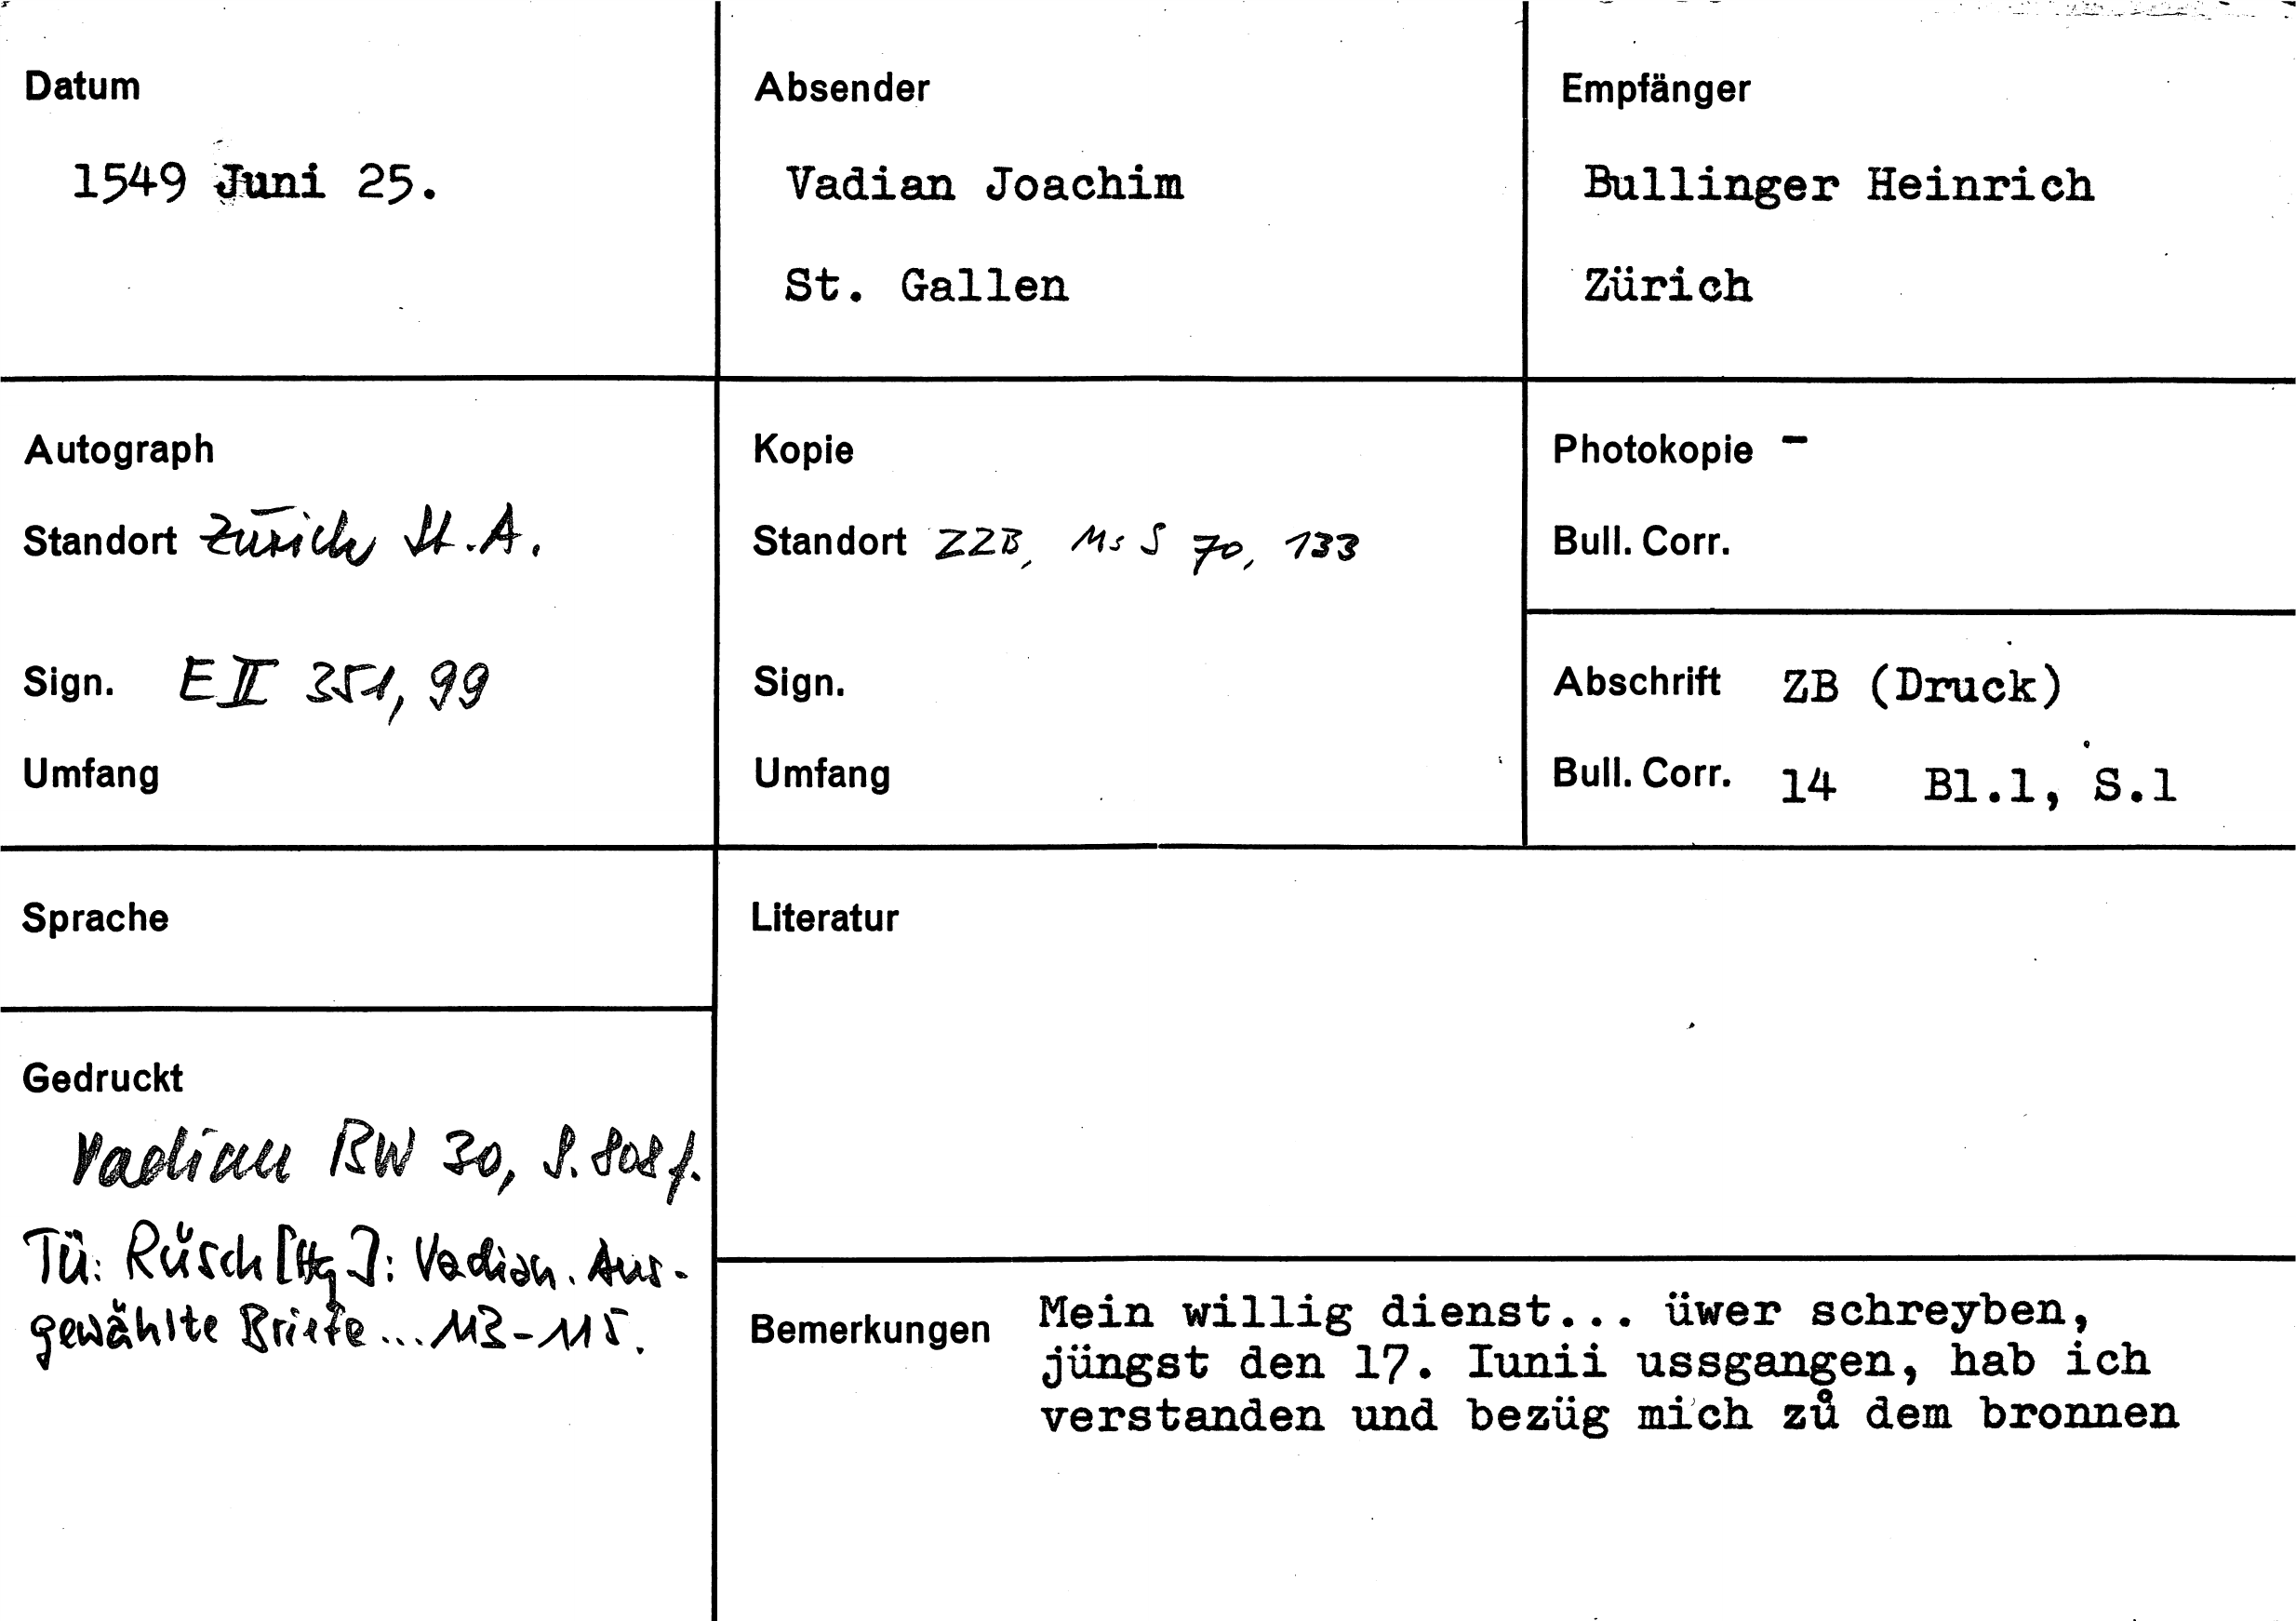 Datum
1549 Juni 25.
Absender
Vadian Joachim
St. Gallen
Empfänger
Bullinger Heinrich
Zürich
Autograph
Standort Zürich St.A.
Sign. E II 351, 99
Umfang
Kopie
Standort ZZB, Ms S 70, 133
Sign.
Umfang
Photokopie -
Bull. Corr.
Abschrift ZB (Druck)
Bull. Corr. 14 Bl.1, S.1
Sprache
Gedruckt
Vadian BW 30, S. 808 f.
Tü: Rüsch [Hg]: Vadian. Aus-
gewählte Briefe... 113-115.
Literatur
Bemerkungen Mein willig dienst... üwer schreyben,
jüngst den 17. Iunii ussgangen, hab ich
verstanden und bezüg mich zů dem bronnen